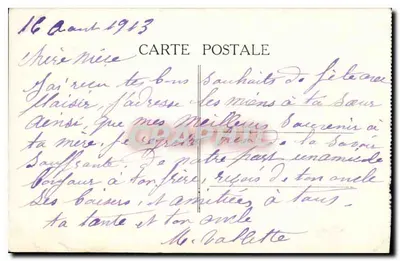 16 Aout 1913
CARTE POSTALE
chère nièce
J'ai reçu tes bons souhaits de fête avec
plaisir, J'adresse les miens à ta sœur
ainsi que mes meilleurs souvenir à
ta mère, je la savoir
souffrante. De notre part un amical
bonjour à ton frère, reçois de ton oncle
des baisers, et amitiées à tous.
ta tante et ton oncle
M. Vallette